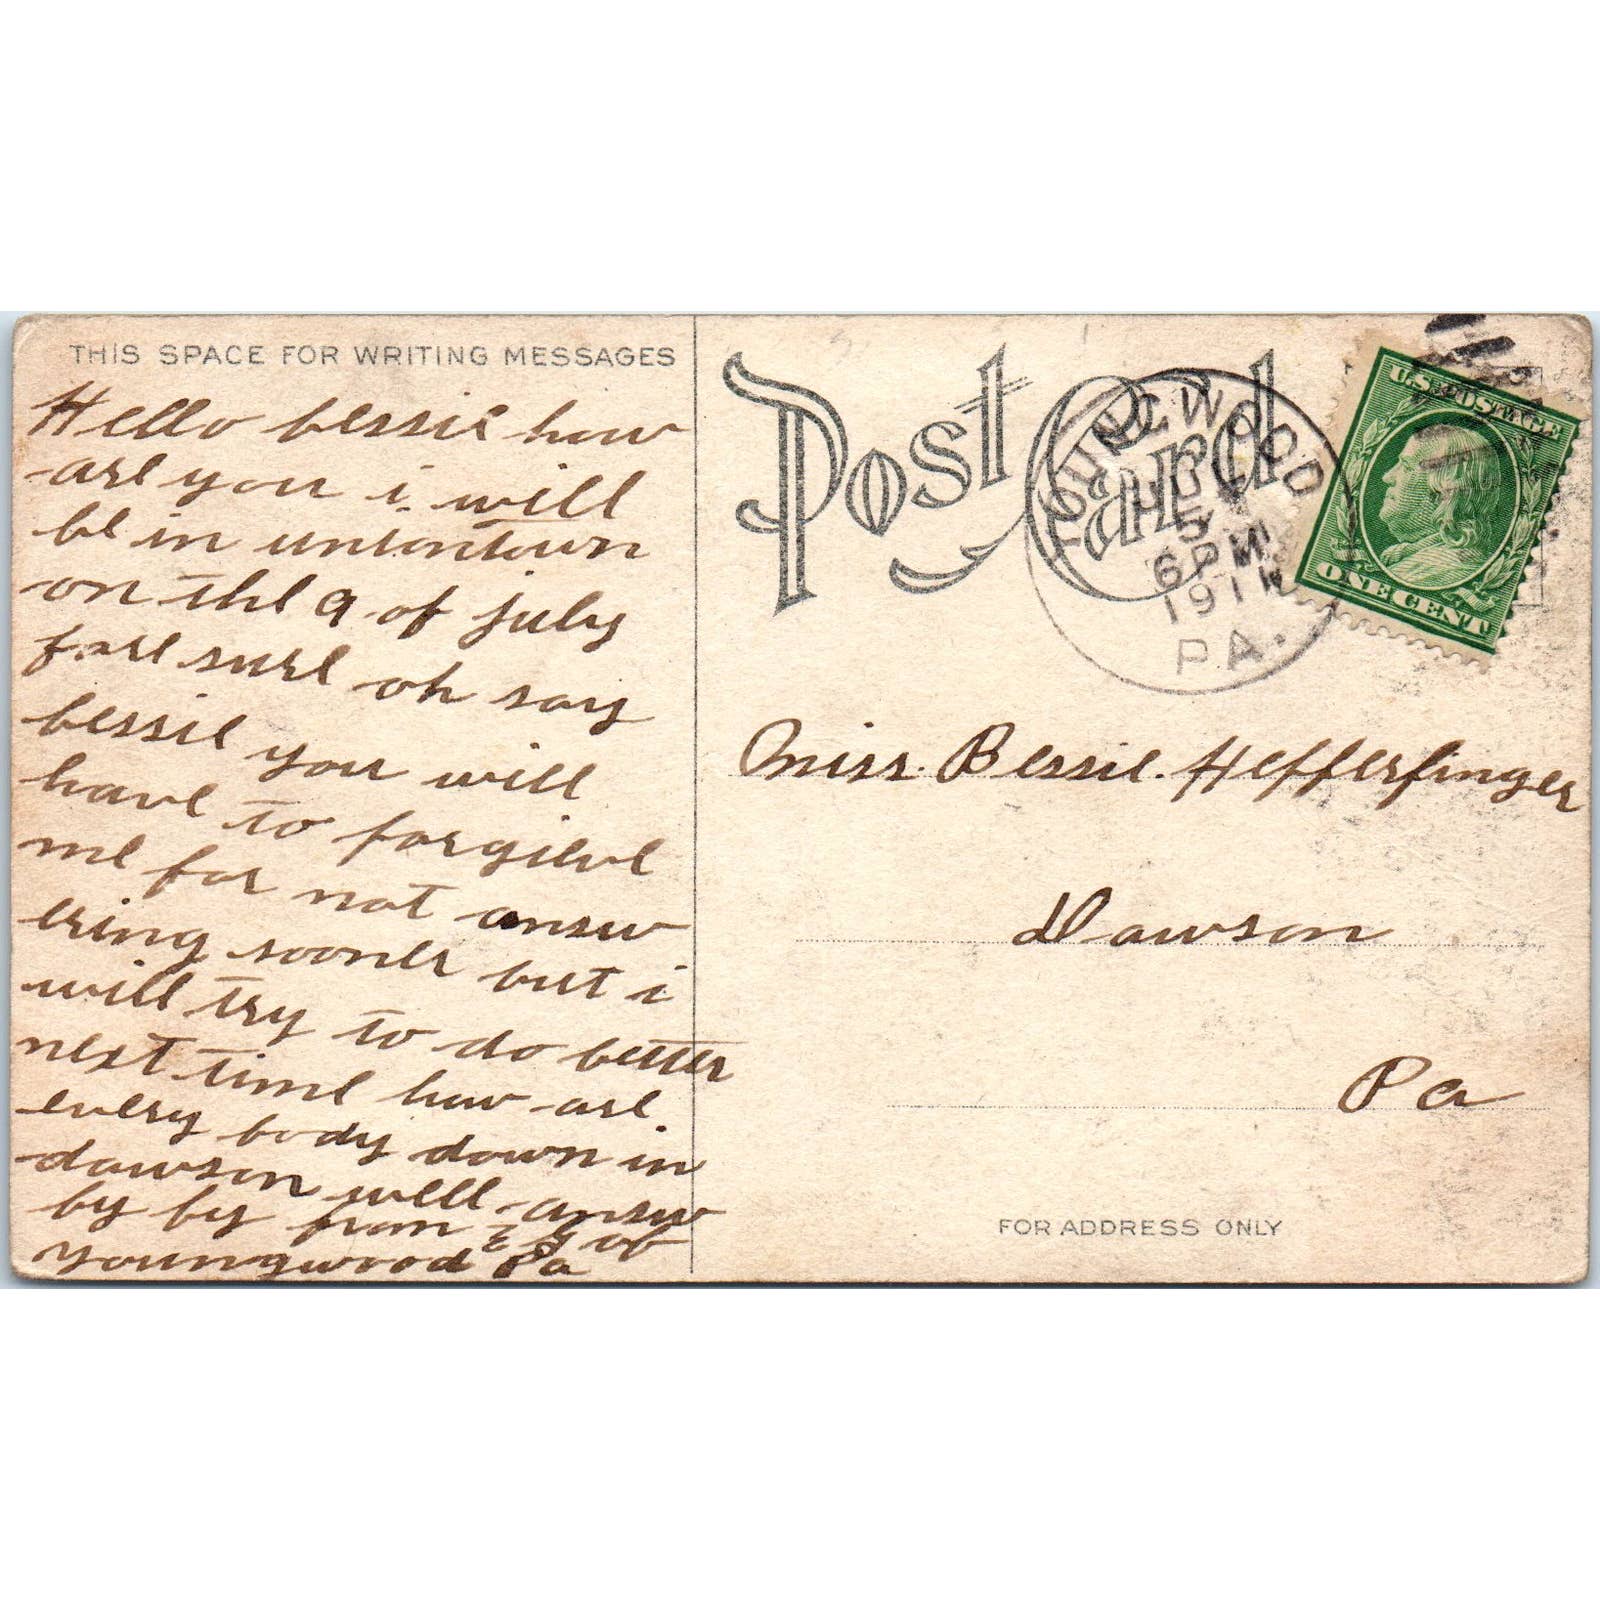 THIS SPACE FOR WRITING MESSAGES
Hello bessie how
are you i will
be in uniontown
on the 9 of july
fore sure oh say
bessie you will
have to forgieve
me for not answ
ering sooner but i
will try to do better
next time how are
every body down in
dawson well answ
by by from
youngwood Pa
Post Card
YOUNGWOOD
JUL
5
6 PM
1911
PA.
U.S. POSTAGE
ONE CENT
Miss. Bessie. Hefferfinger
Dawson
Pa
FOR ADDRESS ONLY